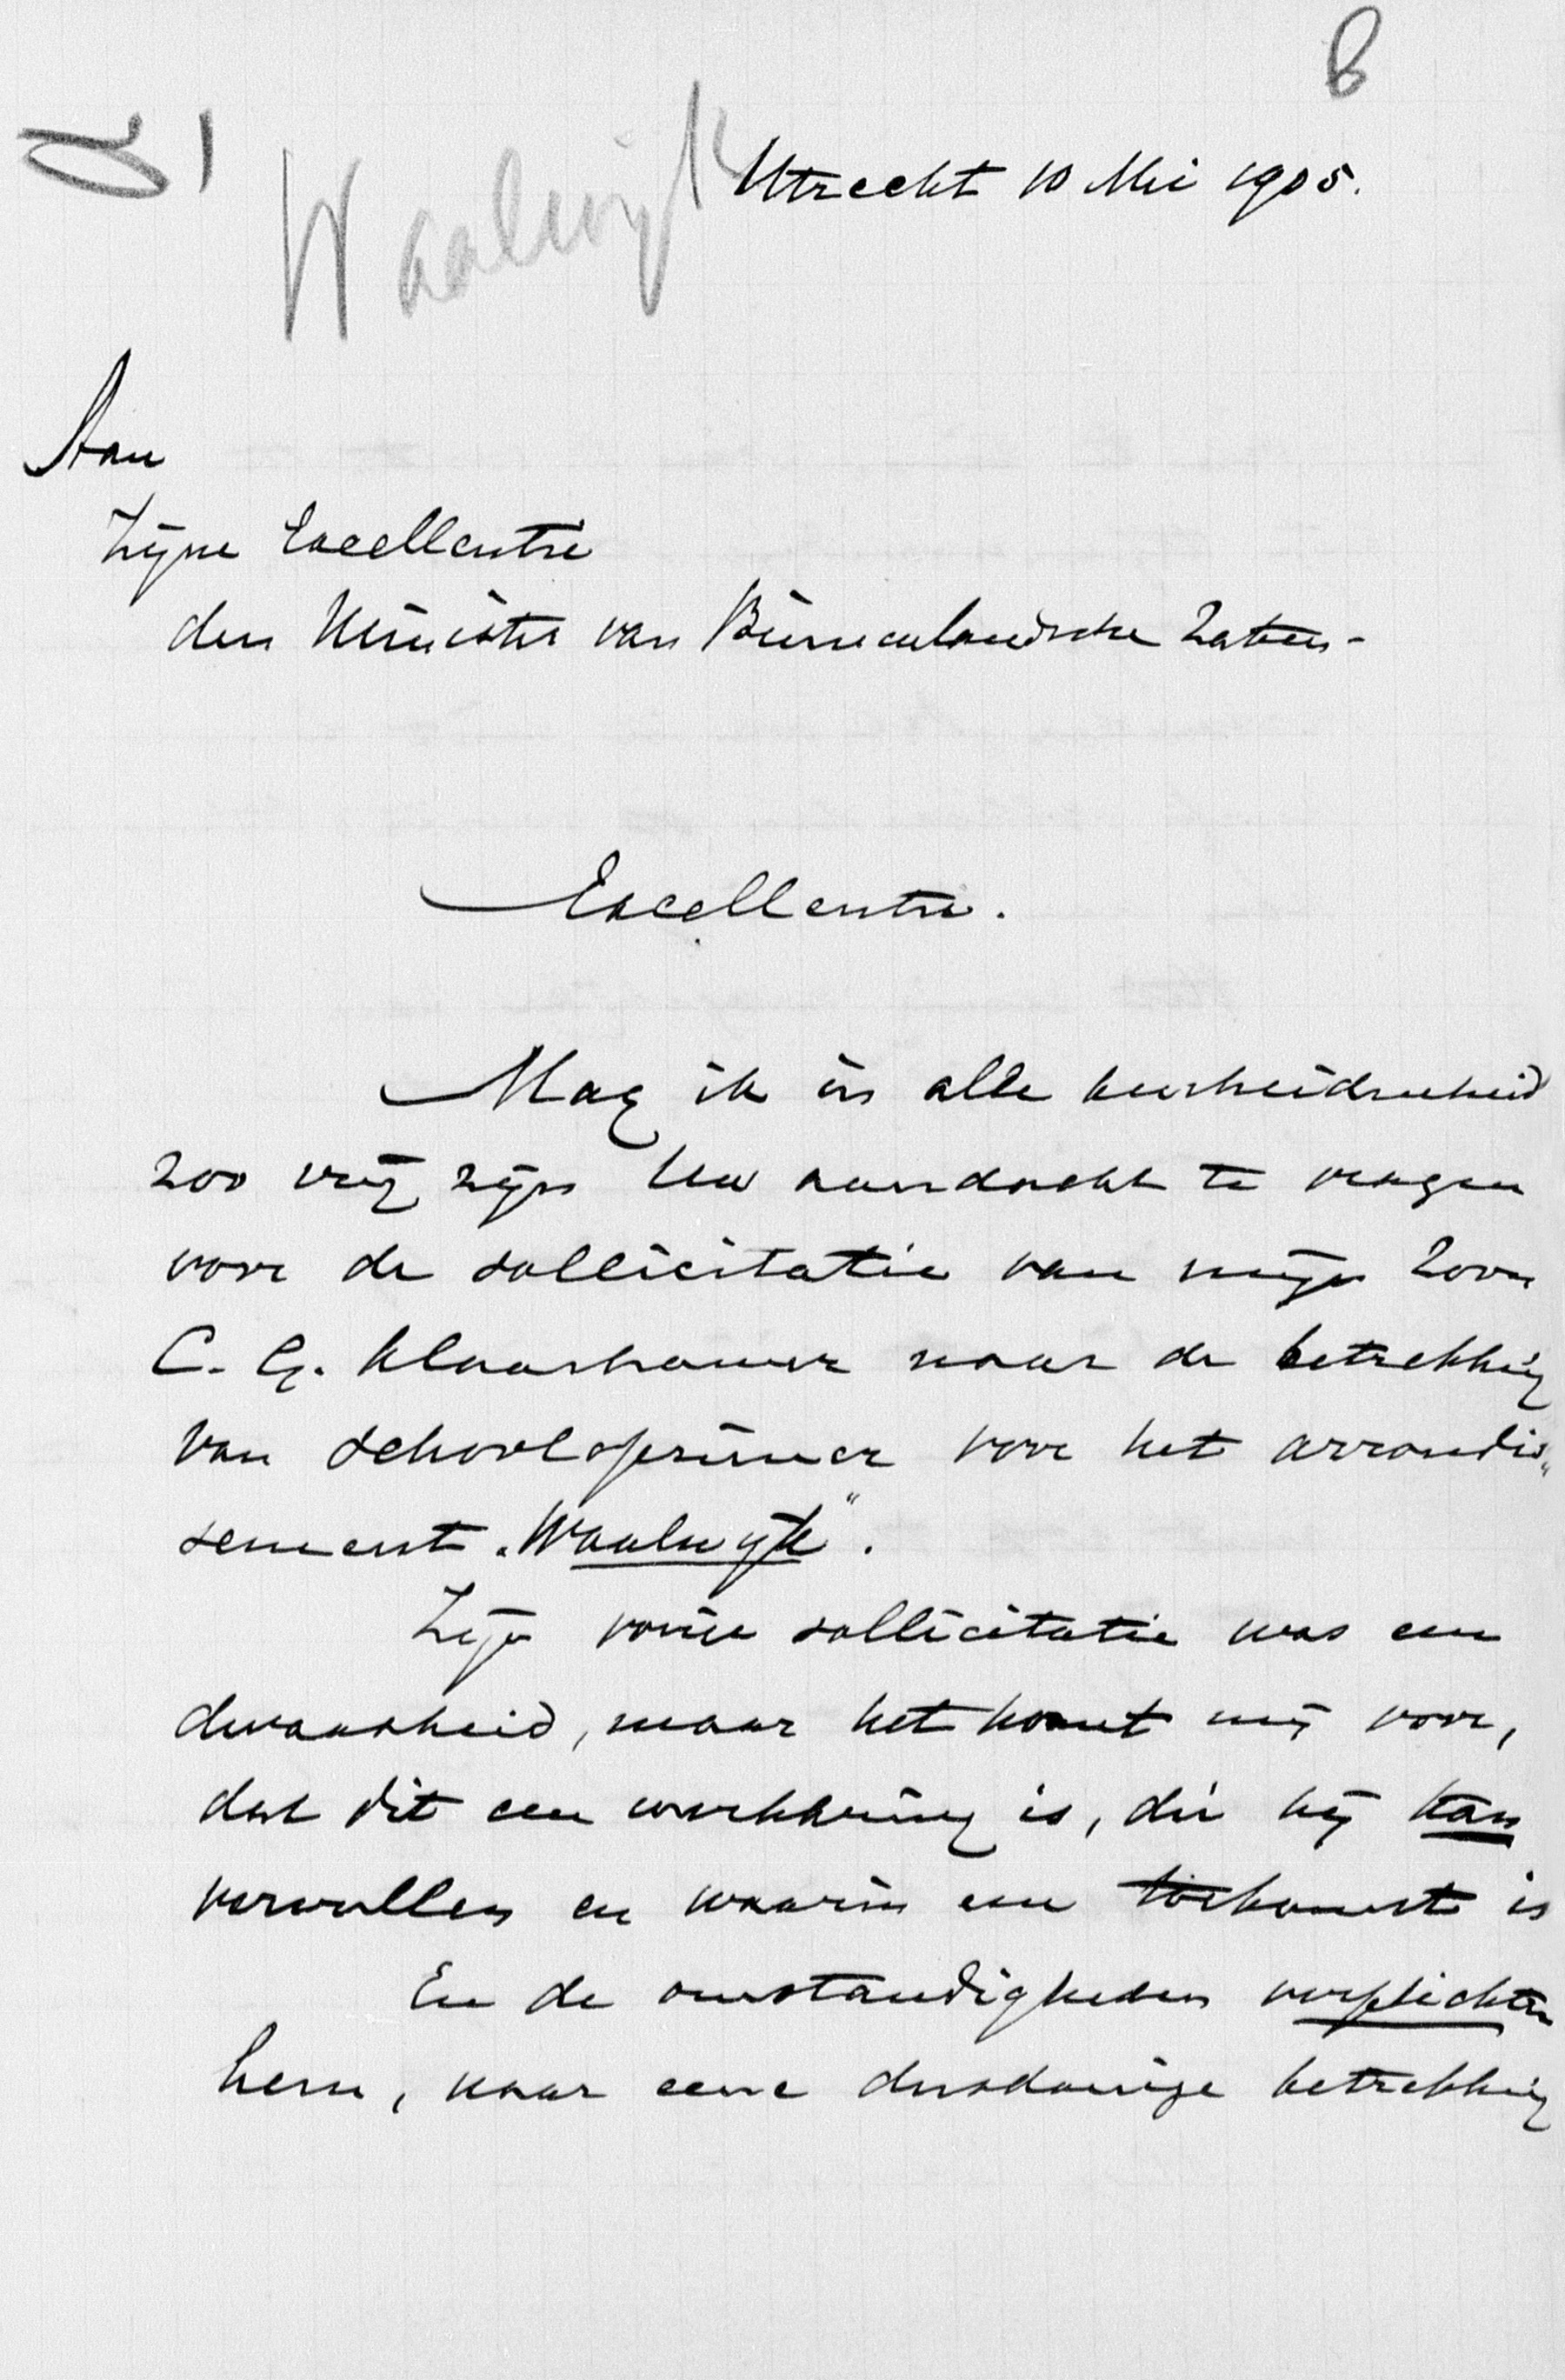 B
Waalwijk
Utrecht 10 Mei 1905.
Aan
Zijne Excellentie
den Minister van Binnenlandsche Zaken-
Excellentie.
Mag ik in alle bescheidenheid
zoo vrij zijn Uw aandacht te vragen
voor de sollicitatie van mijn zoon
C. G. Klaarhamer naar de betrekking
van schoolopziener voor het arrondis„
sement „Waalwijk”.
Zijn vorige sollicitatie was een
dwaasheid, maar het komt mij voor,
dat dit een werkkring is, die hij kan
vervullen en waarin een toekomst is
En de omstandigheden verplichten
hem, naar eene dusdanige betrekking